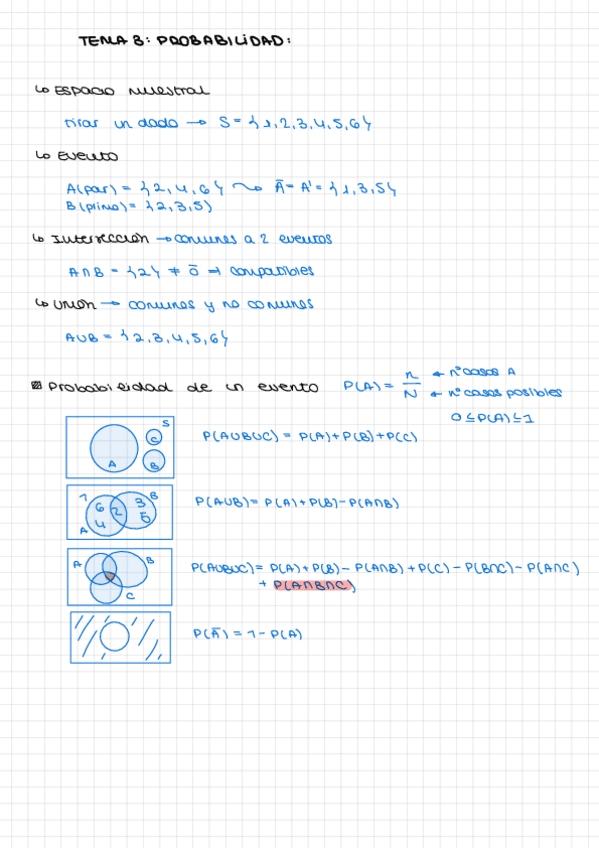 TEMA 3: PROBABILIDAD:
↳ ESPACIO MUESTRAL
tirar un dado → S = {1,2,3,4,5,6}
↳ EVENTO
A(par) = {2,4,6} ⤳ Ā = A' = {1,3,5}
B(primo) = {2,3,5}
↳ Intersección → comunes a 2 eventos
A∩B = {2} ≠ ō ⇒ compatibles
↳ Unión → comunes y no comunes
A∪B = {2,3,4,5,6}
Probabilidad de un evento P(A) = n/N ← nº casos A
← nº casos posibles
0 ≤ P(A) ≤ 1
S
C
A B
P(A∪B∪C) = P(A) + P(B) + P(C)
1 6 2 3 B
A 4 5
P(A∪B) = P(A) + P(B) - P(A∩B)
A B
C
P(A∪B∪C) = P(A) + P(B) - P(A∩B) + P(C) - P(B∩C) - P(A∩C)
+ P(A∩B∩C)
P(Ā) = 1 - P(A)